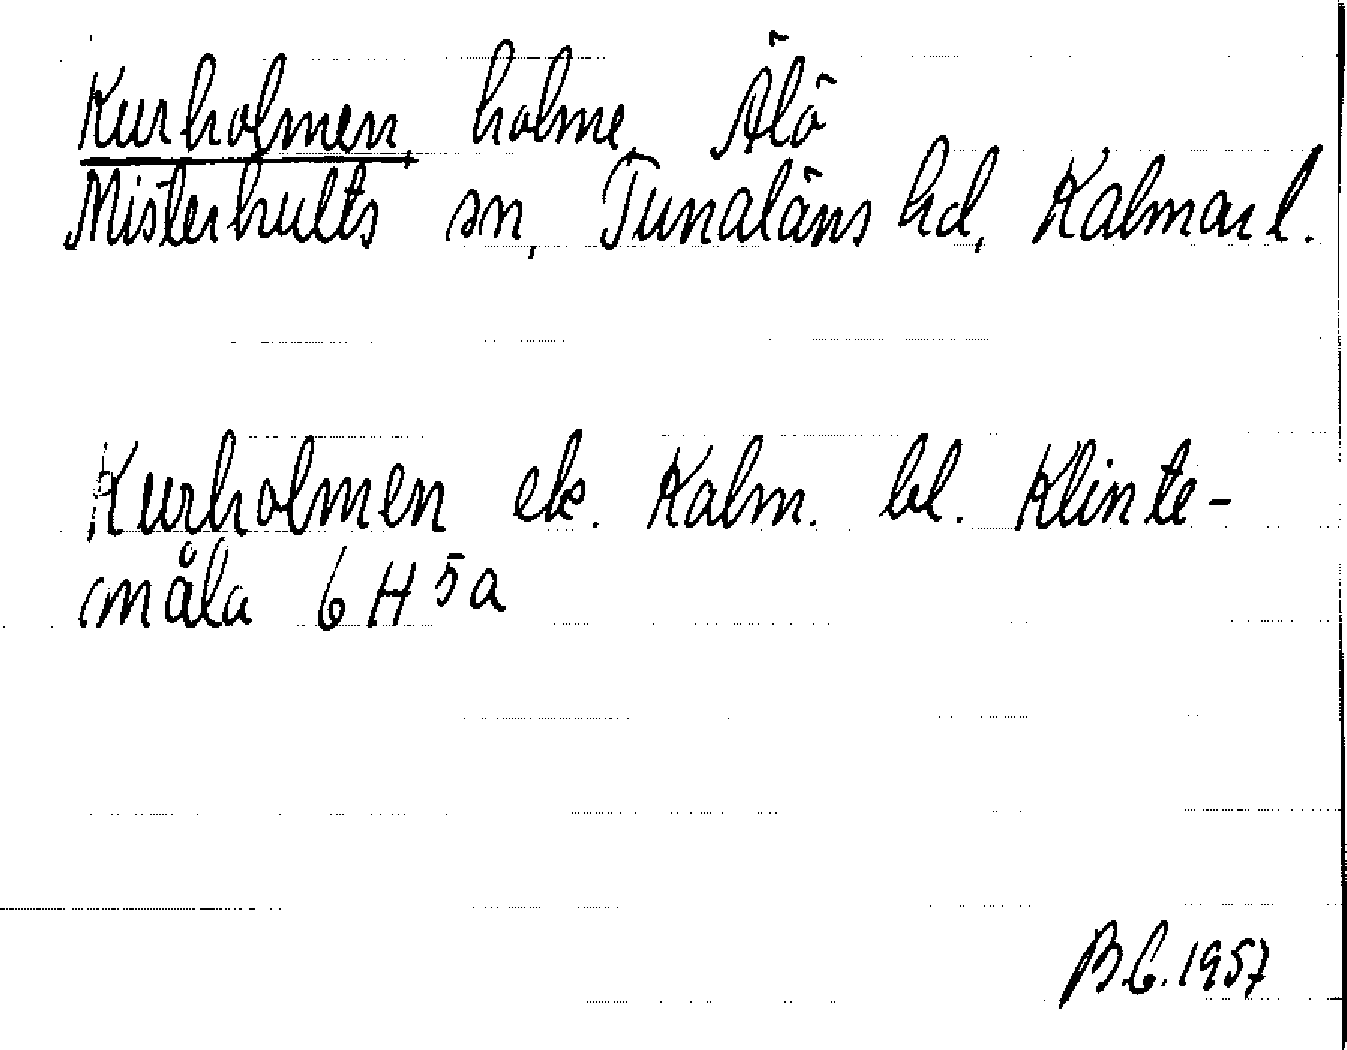 Kurholmen, holme, Älö
Misterhults sn, Tunaläns hd, Kalmar l.
Kurholmen ek. Kalm. bl. Klinte-
måla 6 H 5a
B.C. 1957